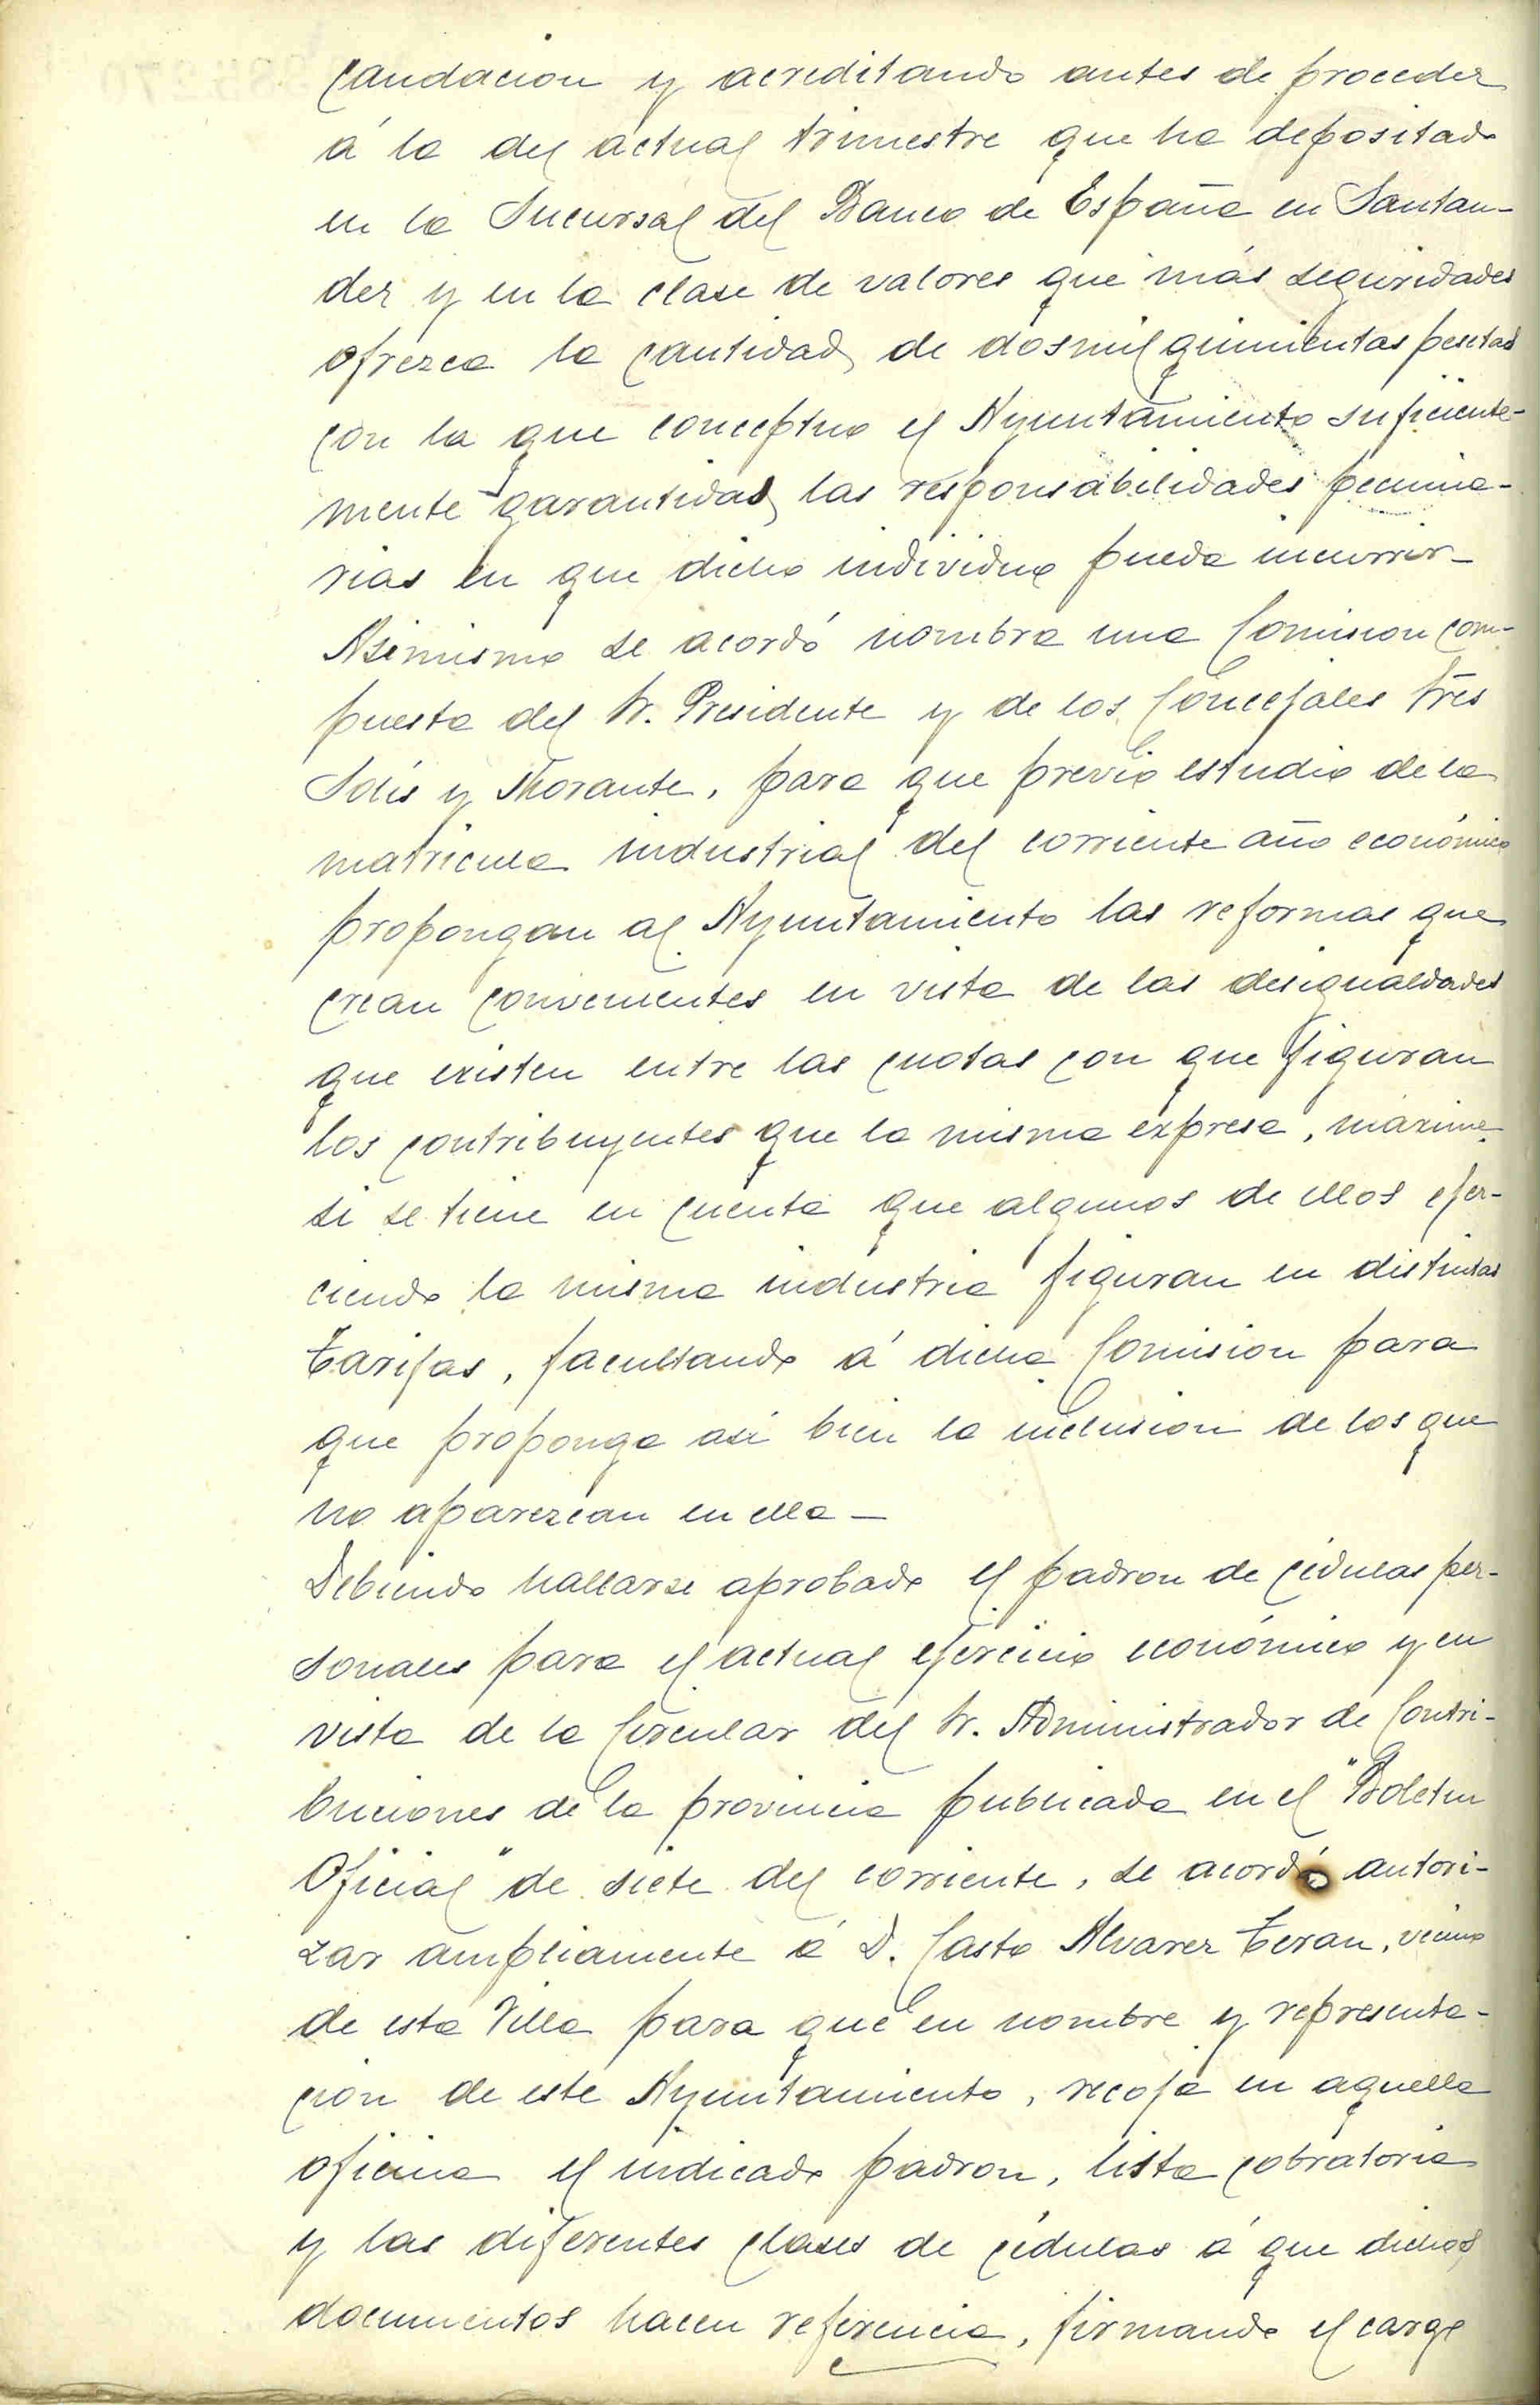 caudacion y acreditando antes de proceder
á la del actual trimestre que ha depositado
en la Sucursal del Banco de España en Santan-
der y en la clase de valores que más seguridades
ofrezca la cantidad de dosmil quinientas pesetas
con la que conceptua el Ayuntamiento suficiente-
mente garantidas las responsabilidades pecunia-
rias en que dicho individuo pueda incurrir_
Asimismo se acordó nombra una Comision com-
puesta del Sr. Presidente y de los Concejales Sres
Solis y Morante, para que previo estudio de la
matricula industrial del corriente año económico
propongan al Ayuntamiento las reformas que
crean convenientes en vista de las desigualdades
que existen entre las cuotas con que figuran
los contribuyentes que la misma expresa, máxime
si se tiene en cuenta que algunos de ellos ejer-
ciendo la misma industria figuran en distintas
tarifas, facultando á dicha Comision para
que proponga asi bien la inclusion de los que
no aparezcan en ella_
Debiendo hallarse aprobado el padron de cédulas per-
sonales para el actual ejercicio económico y en
vista de la Circular del Sr. Administrador de Contri-
buciones de la provincia publicada en el "Boletin
Oficial" de siete del corriente, se acordó autori-
zar ampliamente á D. Casto Alvarez Teran, vecino
de esta Villa para que en nombre y representa-
cion de este Ayuntamiento, recoja en aquella
oficina el indicado padron, lista cobratoria
y las diferentes clases de cédulas á que dichos
documentos hacen referencia, firmando el cargo